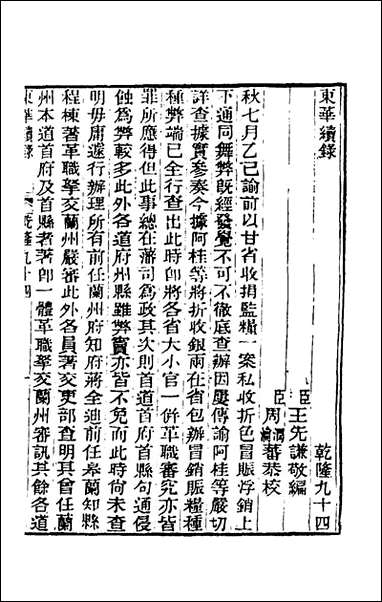 東華續錄
乾隆九十四
臣王先謙敬編
臣周潤蕃周瀹蕃恭校
秋七月乙巳諭前以甘省收捐監糧一案私收折色冒賑浮銷上
下通同舞弊旣經發覺不可不徹底查辦因屢傳諭阿桂等嚴切
詳查據實參奏今據阿桂等將折收銀兩在省包辦冒銷賑糧種
種弊端已全行查出此時卽將各省大小官一併革職審究亦皆
罪所應得但此事總在藩司為政其次則首道首府首縣句通侵
蝕為弊較多此外各道府州縣雖弊實亦皆不免而此時尚未查
明毋庸遽行辦理所有前任蘭州府知府蔣全迪前任皋蘭知縣
程棟著革職拏交蘭州嚴審此外各員著交吏部查明其曾任蘭
州本道首府及首縣者著卽一體革職拏交蘭州審訊其餘各道
東華續錄
乾隆九十四
一